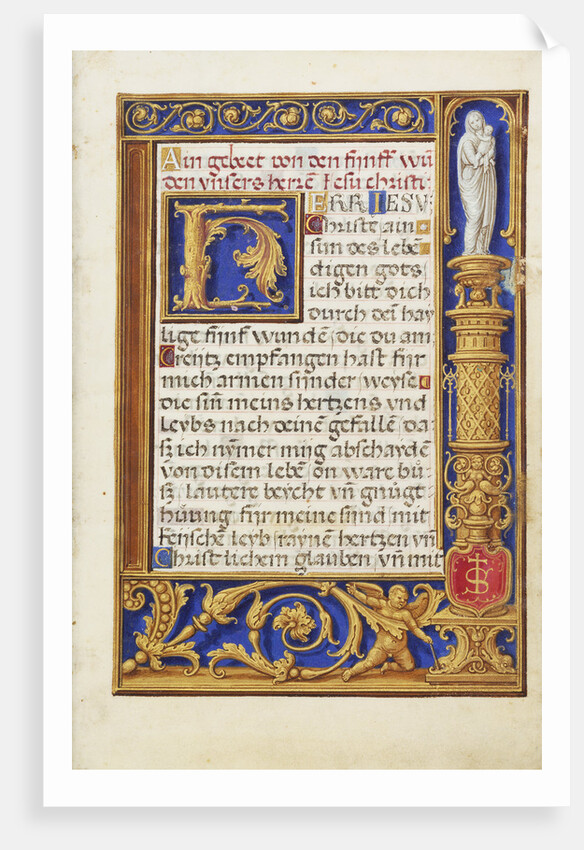 Ain gebeet von den fijnff wū
den vnsers herrē Jesu christi:
HERR IESV:
Christe ain
sun des lebē
digen gots
ich bitt dich
durch dei hay
lige fijnf wundē die du am
Creütz empfangen hast fijr
mich armen sijnder weyse
die siñ meins hertzens vnd
leybs nach deinē gefallē da
sz ich nymer mijg abschaydē
von disem lebē on ware bů:
sz lautere beycht vñ gnůgt
hůung fijr meine sünd mit
feñschē leyb raynē hertzen vñ
Christlichem glauben vñ mit